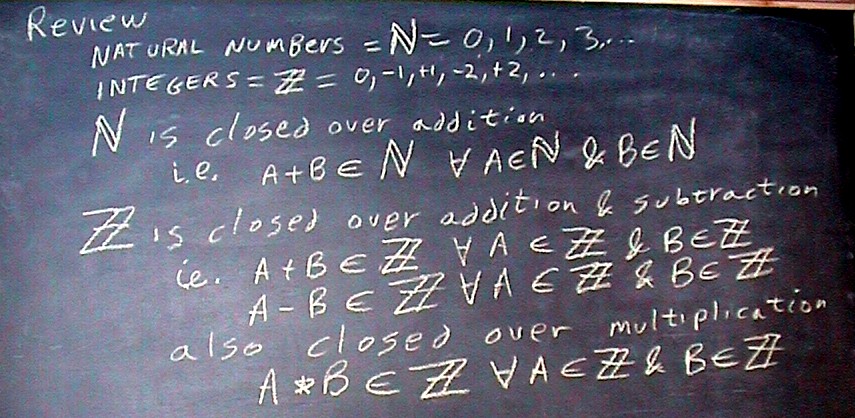 Review
NATURAL NUMBERS = ℕ = 0, 1, 2, 3, ...
INTEGERS = ℤ = 0, -1, +1, -2, +2, ...
ℕ is closed over addition
i.e. A+B ∈ ℕ ∀ A∈ℕ & B∈ℕ
ℤ is closed over addition & subtraction
ie. A+B ∈ ℤ ∀ A ∈ ℤ & B∈ℤ
A-B ∈ ℤ ∀ A ∈ ℤ & B∈ ℤ
also closed over multiplication
A *B ∈ ℤ ∀ A∈ℤ & B∈ℤ